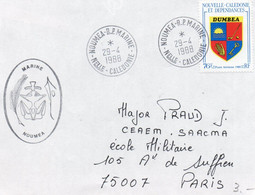 NOUMEA-R.P. MARINE
*
29-4
1988
NLLE - CALEDONIE
NOUMEA-R.P. MARINE
*
29-4
1988
NLLE - CALEDONIE
NOUVELLE-CALEDONIE
ET DEPENDANCES
DUMBEA
MARINE
NOUMEA
Major PRAUD J.
CEAEM. SAACMA
école Militaire
105 Aᵉ de Suffren
75007 PARIS
3.-